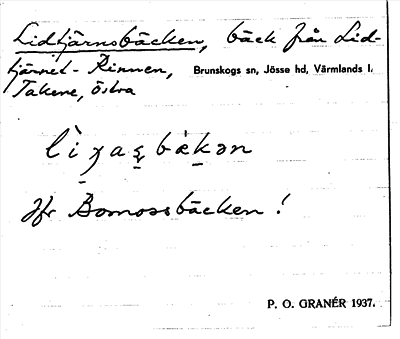 Lidtjärnsbäcken, bäck från Lid-
tjärnet - Rinnen, Brunskogs sn, Jösse hd, Värmlands l.
Takene, östra
Jfr Bomossbäcken!
P. O. GRANÉR 1937.